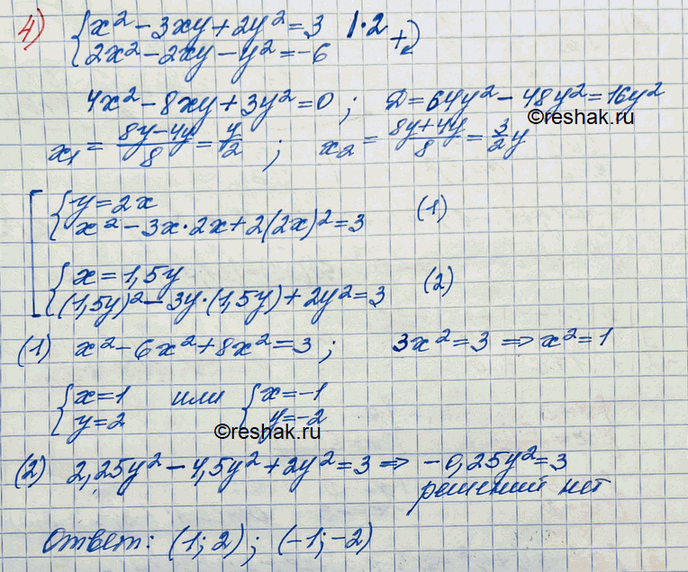 4) { x² - 3xy + 2y² = 3 | · 2
{ 2x² - 2xy - y² = -6 +)
4x² - 8xy + 3y² = 0 ; D = 64y² - 48y² = 16y²
©reshak.ru
x₁ = (8y-4y)/8 = y/2 ; x₂ = (8y+4y)/8 = 3/2 y
[ { y = 2x
{ x² - 3x · 2x + 2(2x)² = 3 (1)
{ x = 1,5y
{ (1,5y)² - 3y · (1,5y) + 2y² = 3 (2)
(1) x² - 6x² + 8x² = 3 ; 3x² = 3 ⇒ x² = 1
{ x = 1 или { x = -1
{ y = 2 { y = -2
©reshak.ru
(2) 2,25y² - 4,5y² + 2y² = 3 ⇒ -0,25y² = 3
решений нет
Ответ: (1; 2) ; (-1; -2)